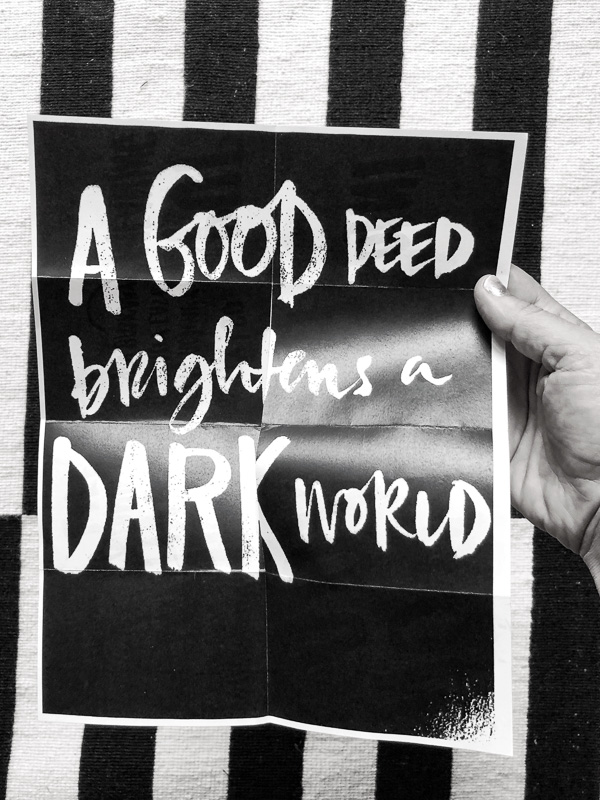 A GOOD DEED
brightens a
DARK WORLD